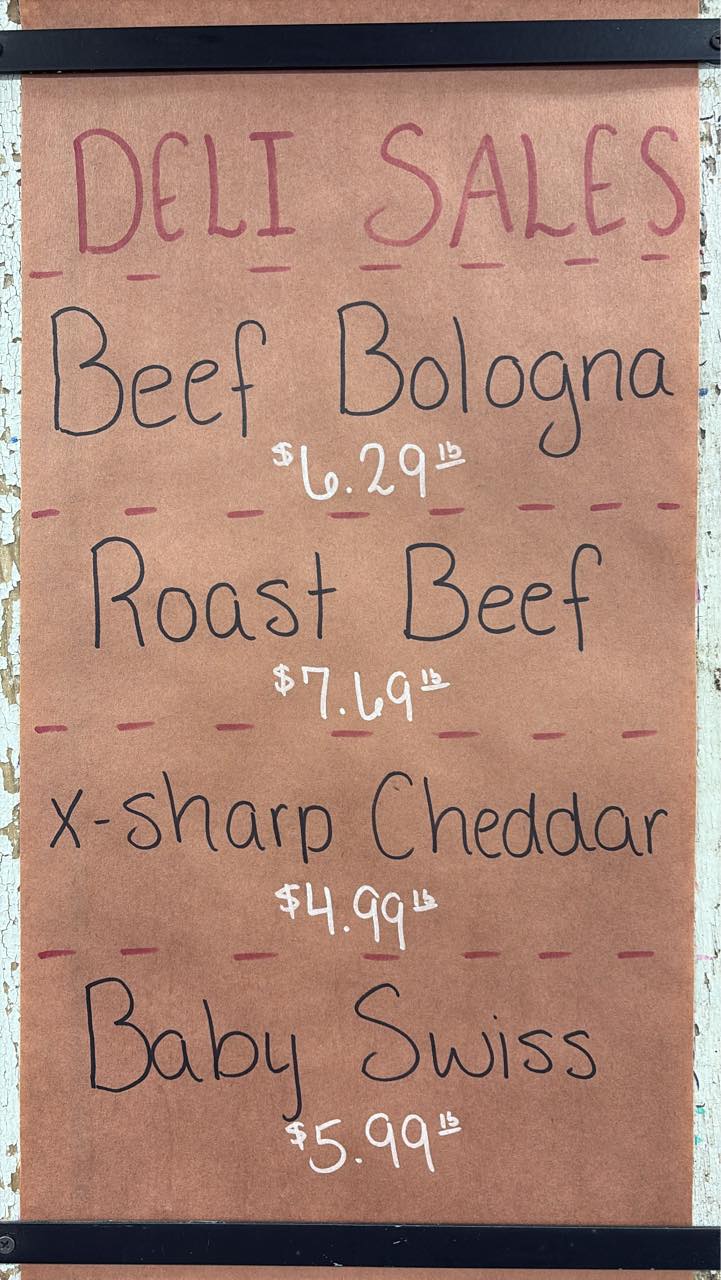 DELI SALES
Beef Bologna
$6.29 lb
Roast Beef
$7.69 lb
x-sharp Cheddar
$4.99 lb
Baby Swiss
$5.99 lb